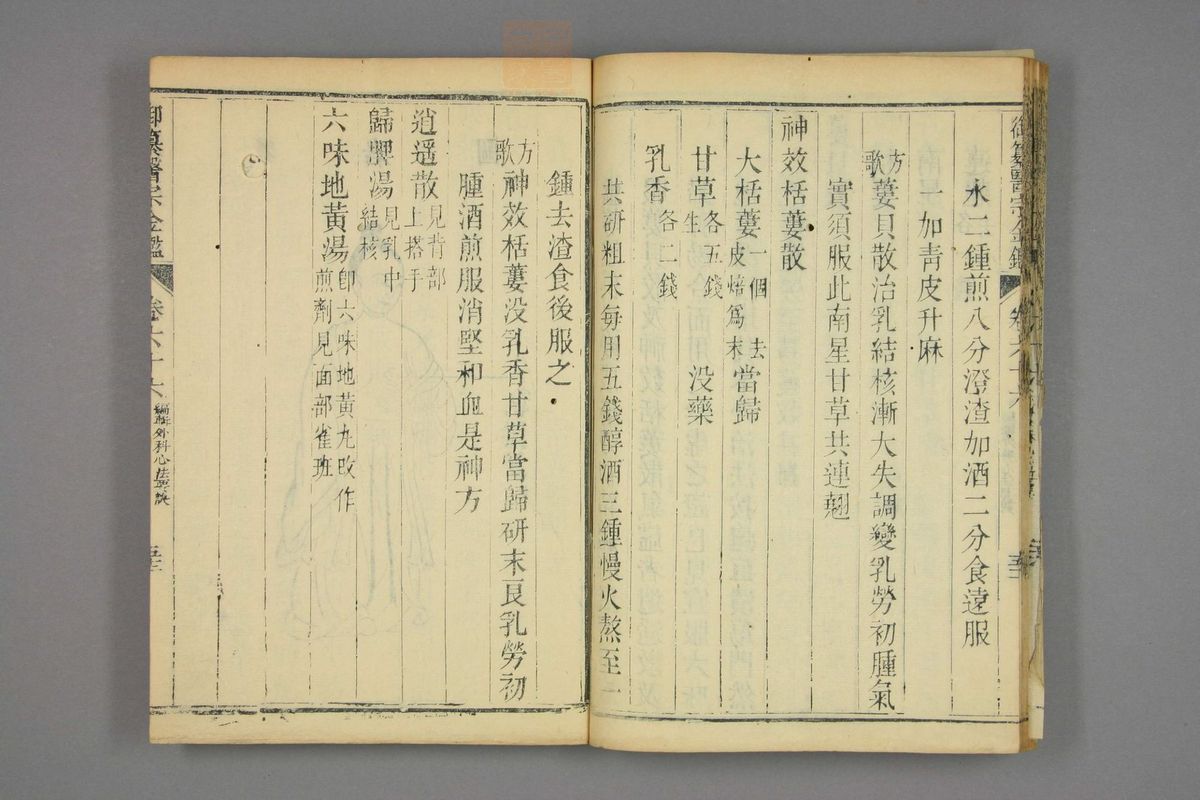 御纂醫宗金鑑 卷六十六
水二鍾煎八分澄渣加酒二分食遠服
一加靑皮升麻
方歌 蔞貝散治乳結核漸大失調變乳勞初腫氣
實須服此南星甘草共連翹
神效栝蔞散
大栝蔞一個去皮焙爲末 當歸
甘草生各五錢 没藥
乳香各二錢
共研粗末每用五錢醇酒三鍾慢火熬至一
鍾去渣食後服之
方歌 神效栝蔞没乳香甘草當歸研末良乳勞初
腫酒煎服消堅和血是神方
逍遥散見背部上搭手
歸脾湯見乳中結核
六味地黃湯卽六味地黃丸改作煎劑見面部雀斑
御纂醫宗金鑑 卷六十六 編輯外科心法要訣